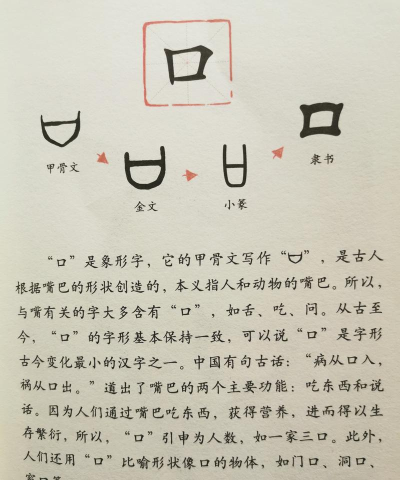 口
甲骨文
金文
小篆
隶书
“口”是象形字，它的甲骨文写作“”，是古人
根据嘴巴的形状创造的，本义指人和动物的嘴巴。所以，
与嘴有关的字大多含有“口”，如舌、吃、问。从古至
今，“口”的字形基本保持一致，可以说“口”是字形
古今变化最小的汉字之一。中国有句古话：“病从口入，
祸从口出。”道出了嘴巴的两个主要功能：吃东西和说
话。因为人们通过嘴巴吃东西，获得营养，进而得以生
存繁衍，所以，“口”引申为人数，如一家三口。此外，
人们还用“口”比喻形状像口的物体，如门口、洞口、